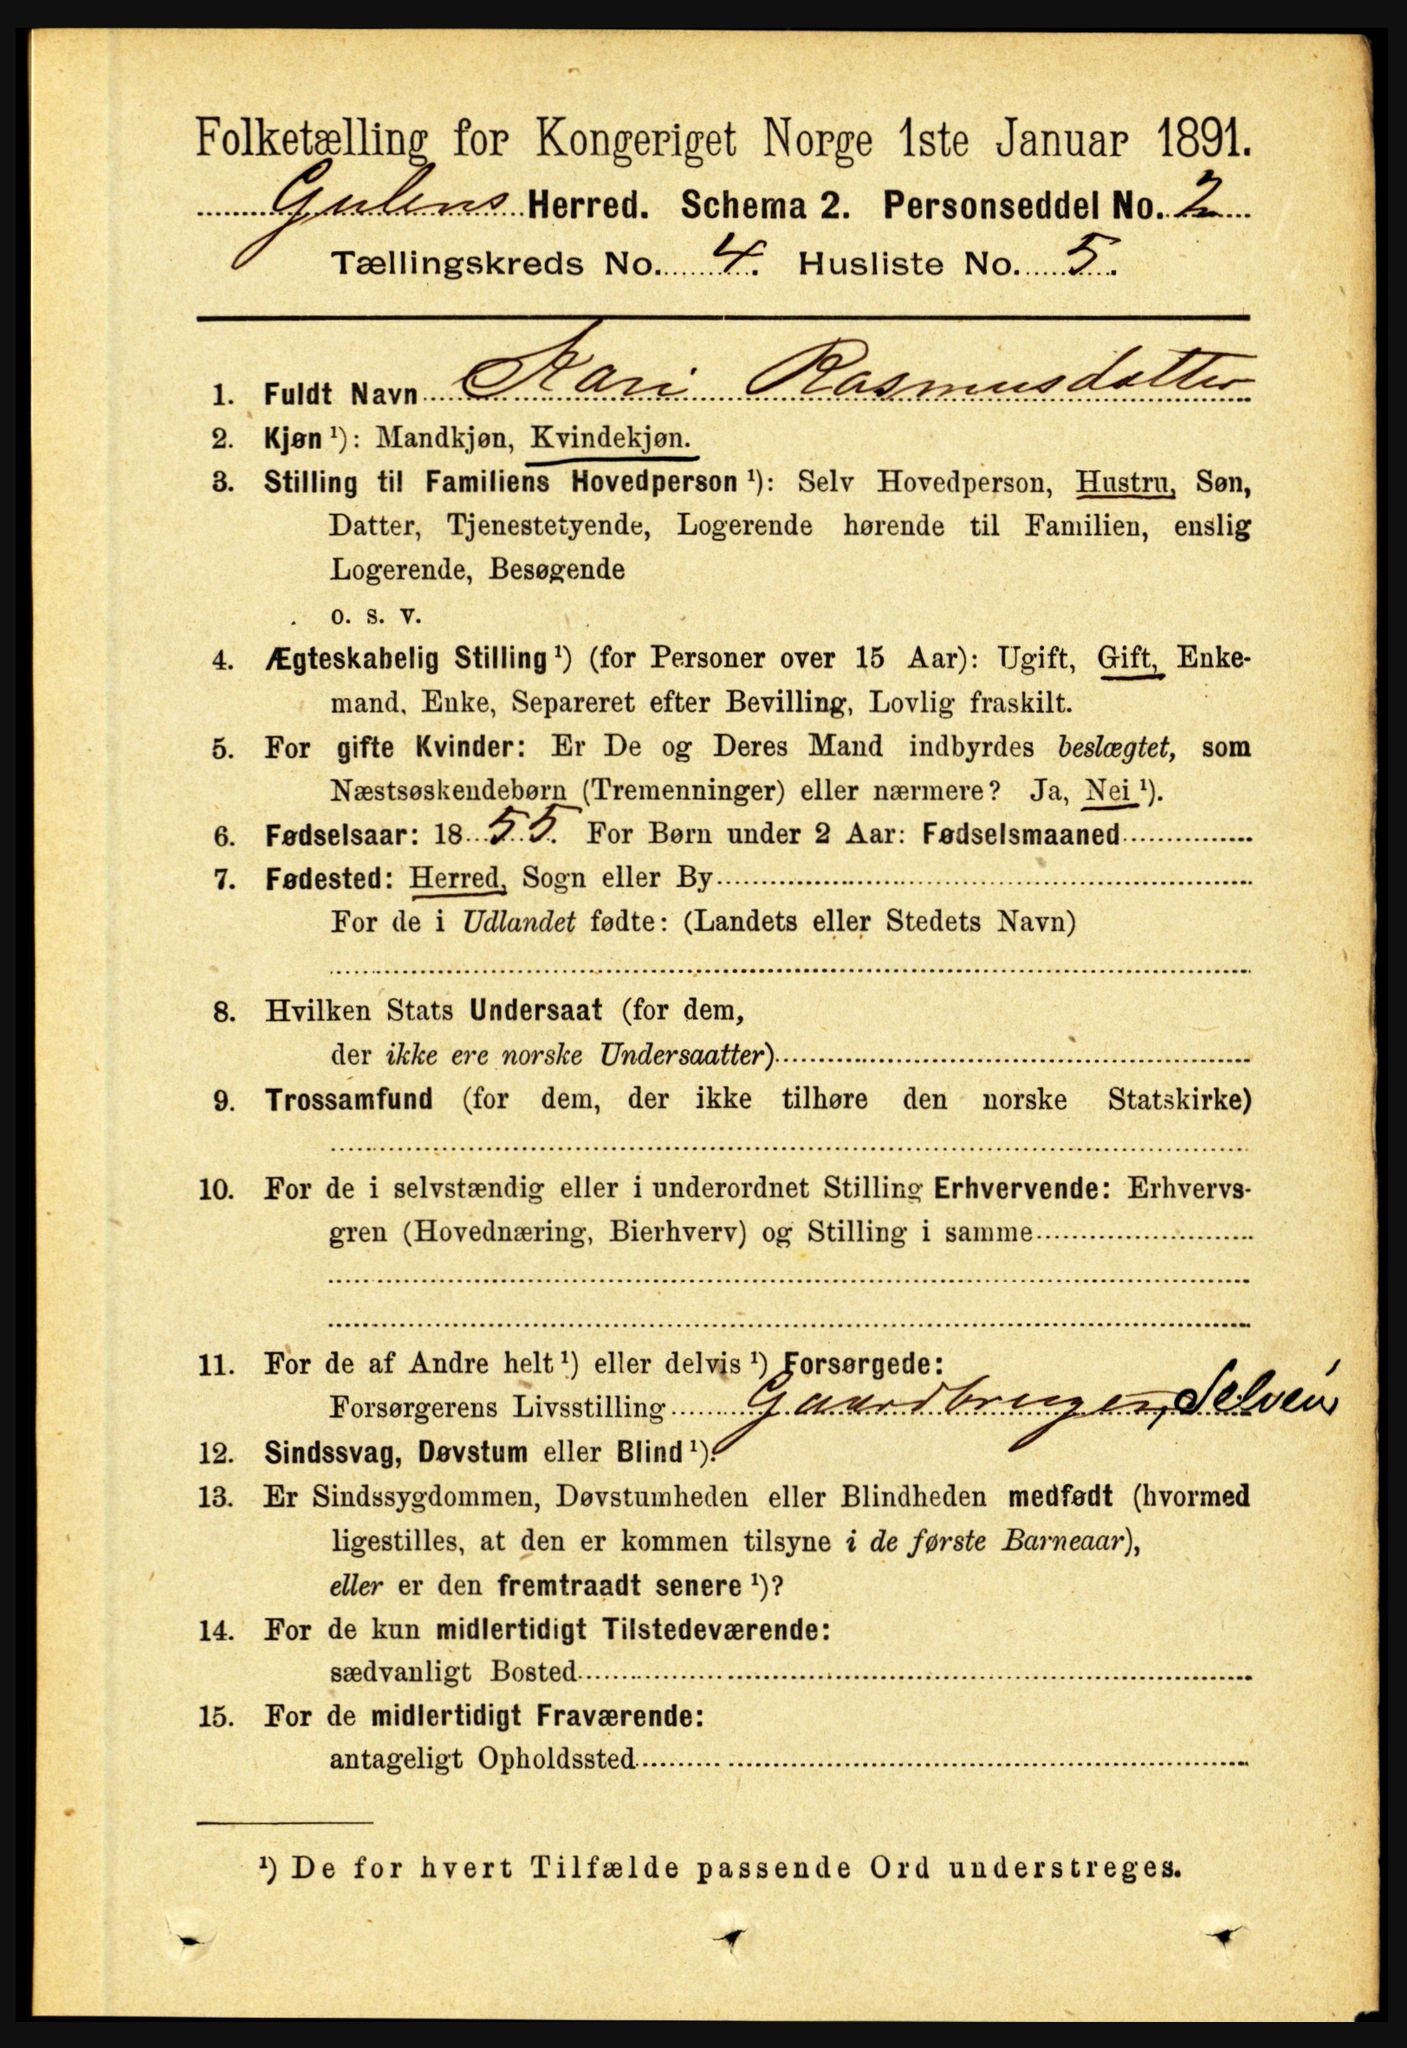 Folketælling for Kongeriget Norge 1ste Januar 1891.
Gulens Herred. Schema 2. Personseddel No. 2
Tællingskreds No. 4. Husliste No. 5.
1. Fuldt Navn Kari Rasmusdatter
2. Kjøn ¹): Mandkjøn, Kvindekjøn.
3. Stilling til Familiens Hovedperson ¹): Selv Hovedperson, Hustru, Søn,
Datter, Tjenestetyende, Logerende hørende til Familien, enslig
Logerende, Besøgende
o. s. v.
4. Ægteskabelig Stilling ¹) (for Personer over 15 Aar): Ugift, Gift, Enke-
mand, Enke, Separeret efter Bevilling, Lovlig fraskilt.
5. For gifte Kvinder: Er De og Deres Mand indbyrdes beslægtet, som
Næstsøskendebørn (Tremenninger) eller nærmere? Ja, Nei ¹).
6. Fødselsaar: 1855. For Børn under 2 Aar: Fødselsmaaned
7. Fødested: Herred, Sogn eller By
For de i Udlandet fødte: (Landets eller Stedets Navn)
8. Hvilken Stats Undersaat (for dem,
der ikke ere norske Undersaatter)
9. Trossamfund (for dem, der ikke tilhøre den norske Statskirke)
10. For de i selvstændig eller i underordnet Stilling Erhvervende: Erhvervs-
gren (Hovednæring, Bierhverv) og Stilling i samme
11. For de af Andre helt ¹) eller delvis ¹) Forsørgede:
Forsørgerens Livsstilling Gaardbruger, Selveier
12. Sindssvag, Døvstum eller Blind ¹).
13. Er Sindssygdommen, Døvstumheden eller Blindheden medfødt (hvormed
ligestilles, at den er kommen tilsyne i de første Barneaar),
eller er den fremtraadt senere ¹)?
14. For de kun midlertidigt Tilstedeværende:
sædvanligt Bosted
15. For de midlertidigt Fraværende:
antageligt Opholdssted
¹) De for hvert Tilfælde passende Ord understreges.